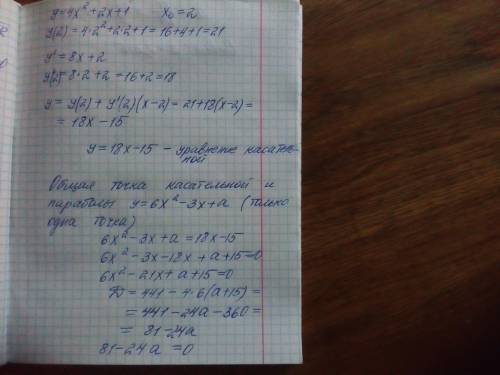 y=4x²+2x+1 x₀=2
y(2)=4·2²+2·2+1=16+4+1=21
y'=8x+2
y'(2)=8·2+2=16+2=18
y=y(2)+y'(2)(x-2)=21+18(x-2)=
=18x-15
y=18x-15 - уравнение касатель-
ной
Общая точка касательной и
параболы y=6x²-3x+a (только
одна точка)
6x²-3x+a=18x-15
6x²-3x-18x+a+15=0
6x²-21x+a+15=0
D=441-4·6(a+15)=
=441-24a-360=
=81-24a
81-24a=0